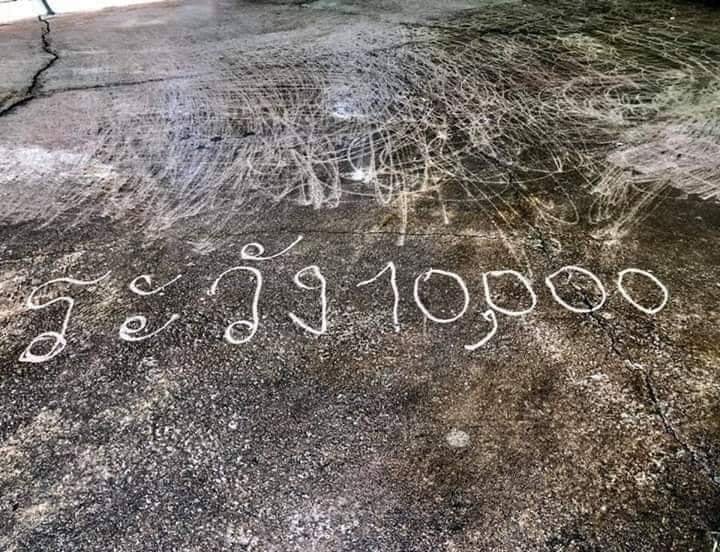 ระวัง 10,000